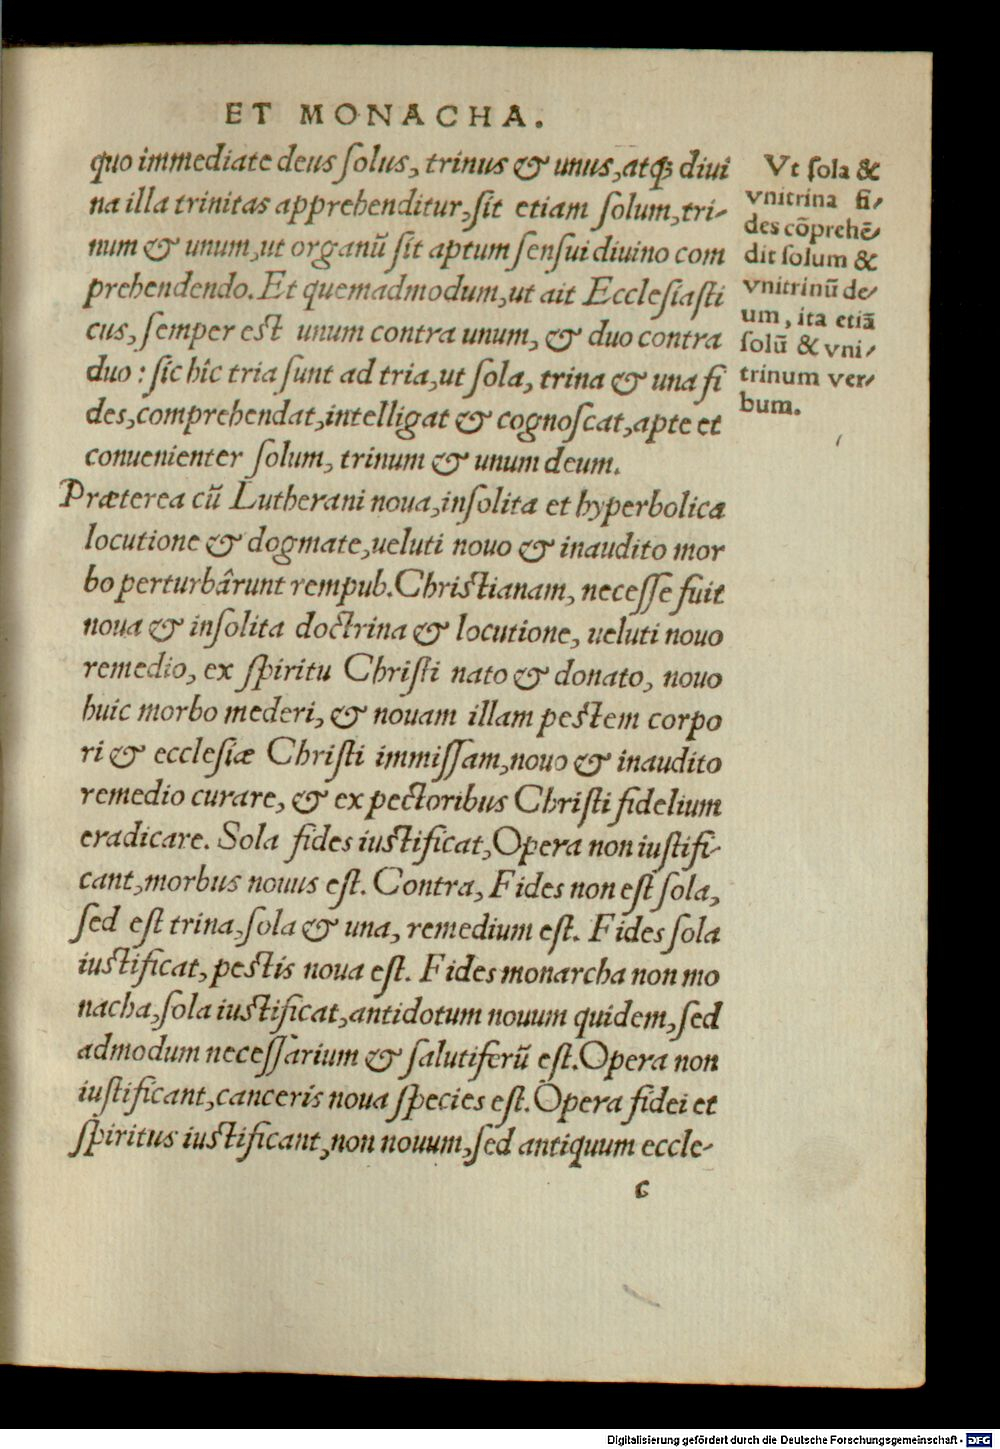 ET MONACHA.
quo immediate deus solus, trinus & unus, atq́; diui
na illa trinitas apprehenditur, sit etiam solum, tri-
num & unum, ut organū sit aptum sensui diuino com
prehendendo. Et quemadmodum, ut ait Ecclesiasti
cus, semper est unum contra unum, & duo contra
duo : sic hîc tria sunt ad tria, ut sola, trina & una fi
des, comprehendat, intelligat & cognoscat, apte et
conuenienter solum, trinum & unum deum.
Præterea cū Lutherani noua, insolita et hyperbolica
locutione & dogmate, ueluti nouo & inaudito mor
bo perturbârunt rempub. Christianam, necesse fuit
noua & insolita doctrina & locutione, ueluti nouo
remedio, ex spiritu Christi nato & donato, nouo
huic morbo mederi, & nouam illam pestem corpo
ri & ecclesiæ Christi immissam, nouo & inaudito
remedio curare, & ex pectoribus Christi fidelium
eradicare. Sola fides iustificat, Opera non iustifi-
cant, morbus nouus est. Contra, Fides non est sola,
sed est trina, sola & una, remedium est. Fides sola
iustificat, pestis noua est. Fides monarcha non mo
nacha, sola iustificat, antidotum nouum quidem, sed
admodum necessarium & salutiferū est. Opera non
iustificant, canceris noua species est. Opera fidei et
spiritus iustificant, non nouum, sed antiquum eccle-
c
Vt sola &
vnitrina fi-
des cōprehē-
dit solum &
vnitrinū de-
um, ita etiā
solū & vni-
trinum ver-
bum.
Digitalisierung gefördert durch die Deutsche Forschungsgemeinschaft - DFG